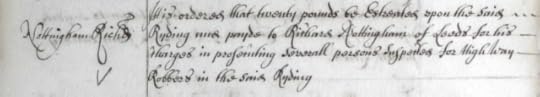 It is ordered that twenty pounds be Estreated upon the said
Nottingham Richd Ryding and payde to Richard Nottingham of Leeds for his
Charges in prosecuting Severall persons Suspected for High Way
Robbers in the said Ryding